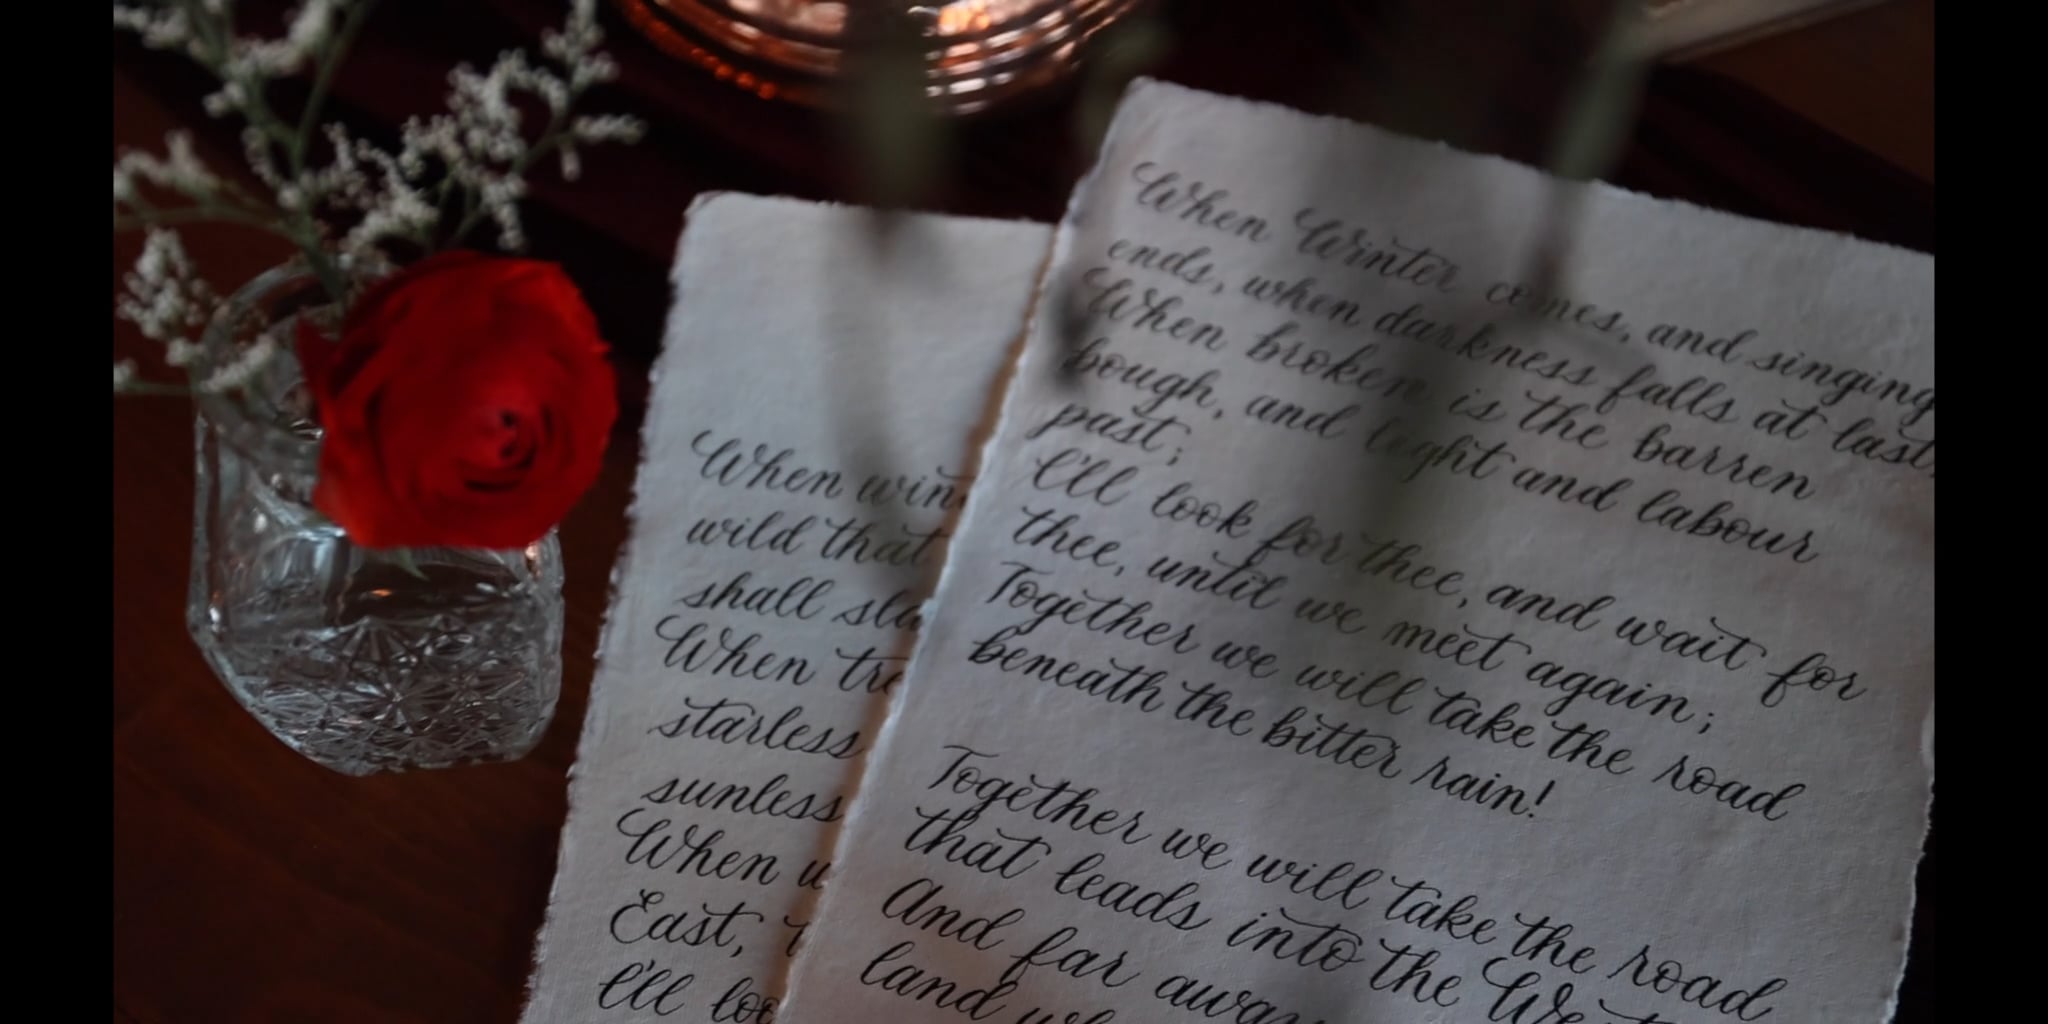 When win
wild that
shall sla
When tre
starless
sunless
When w
East,
I'll loo
When Winter comes, and singing
ends, when darkness falls at last,
When broken is the barren
bough, and light and labour
past;
I'll look for thee, and wait for
thee, until we meet again;
Together we will take the road
beneath the bitter rain!
Together we will take the road
that leads into the We
And far away
land wh